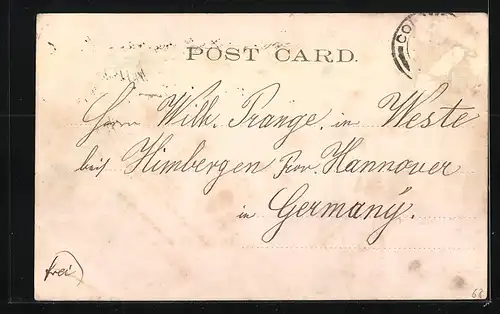 POST CARD.
CO
Herrn Wilh. Prange. in Weste
bei Himbergen Prov. Hannover
in Germany.
frei
62